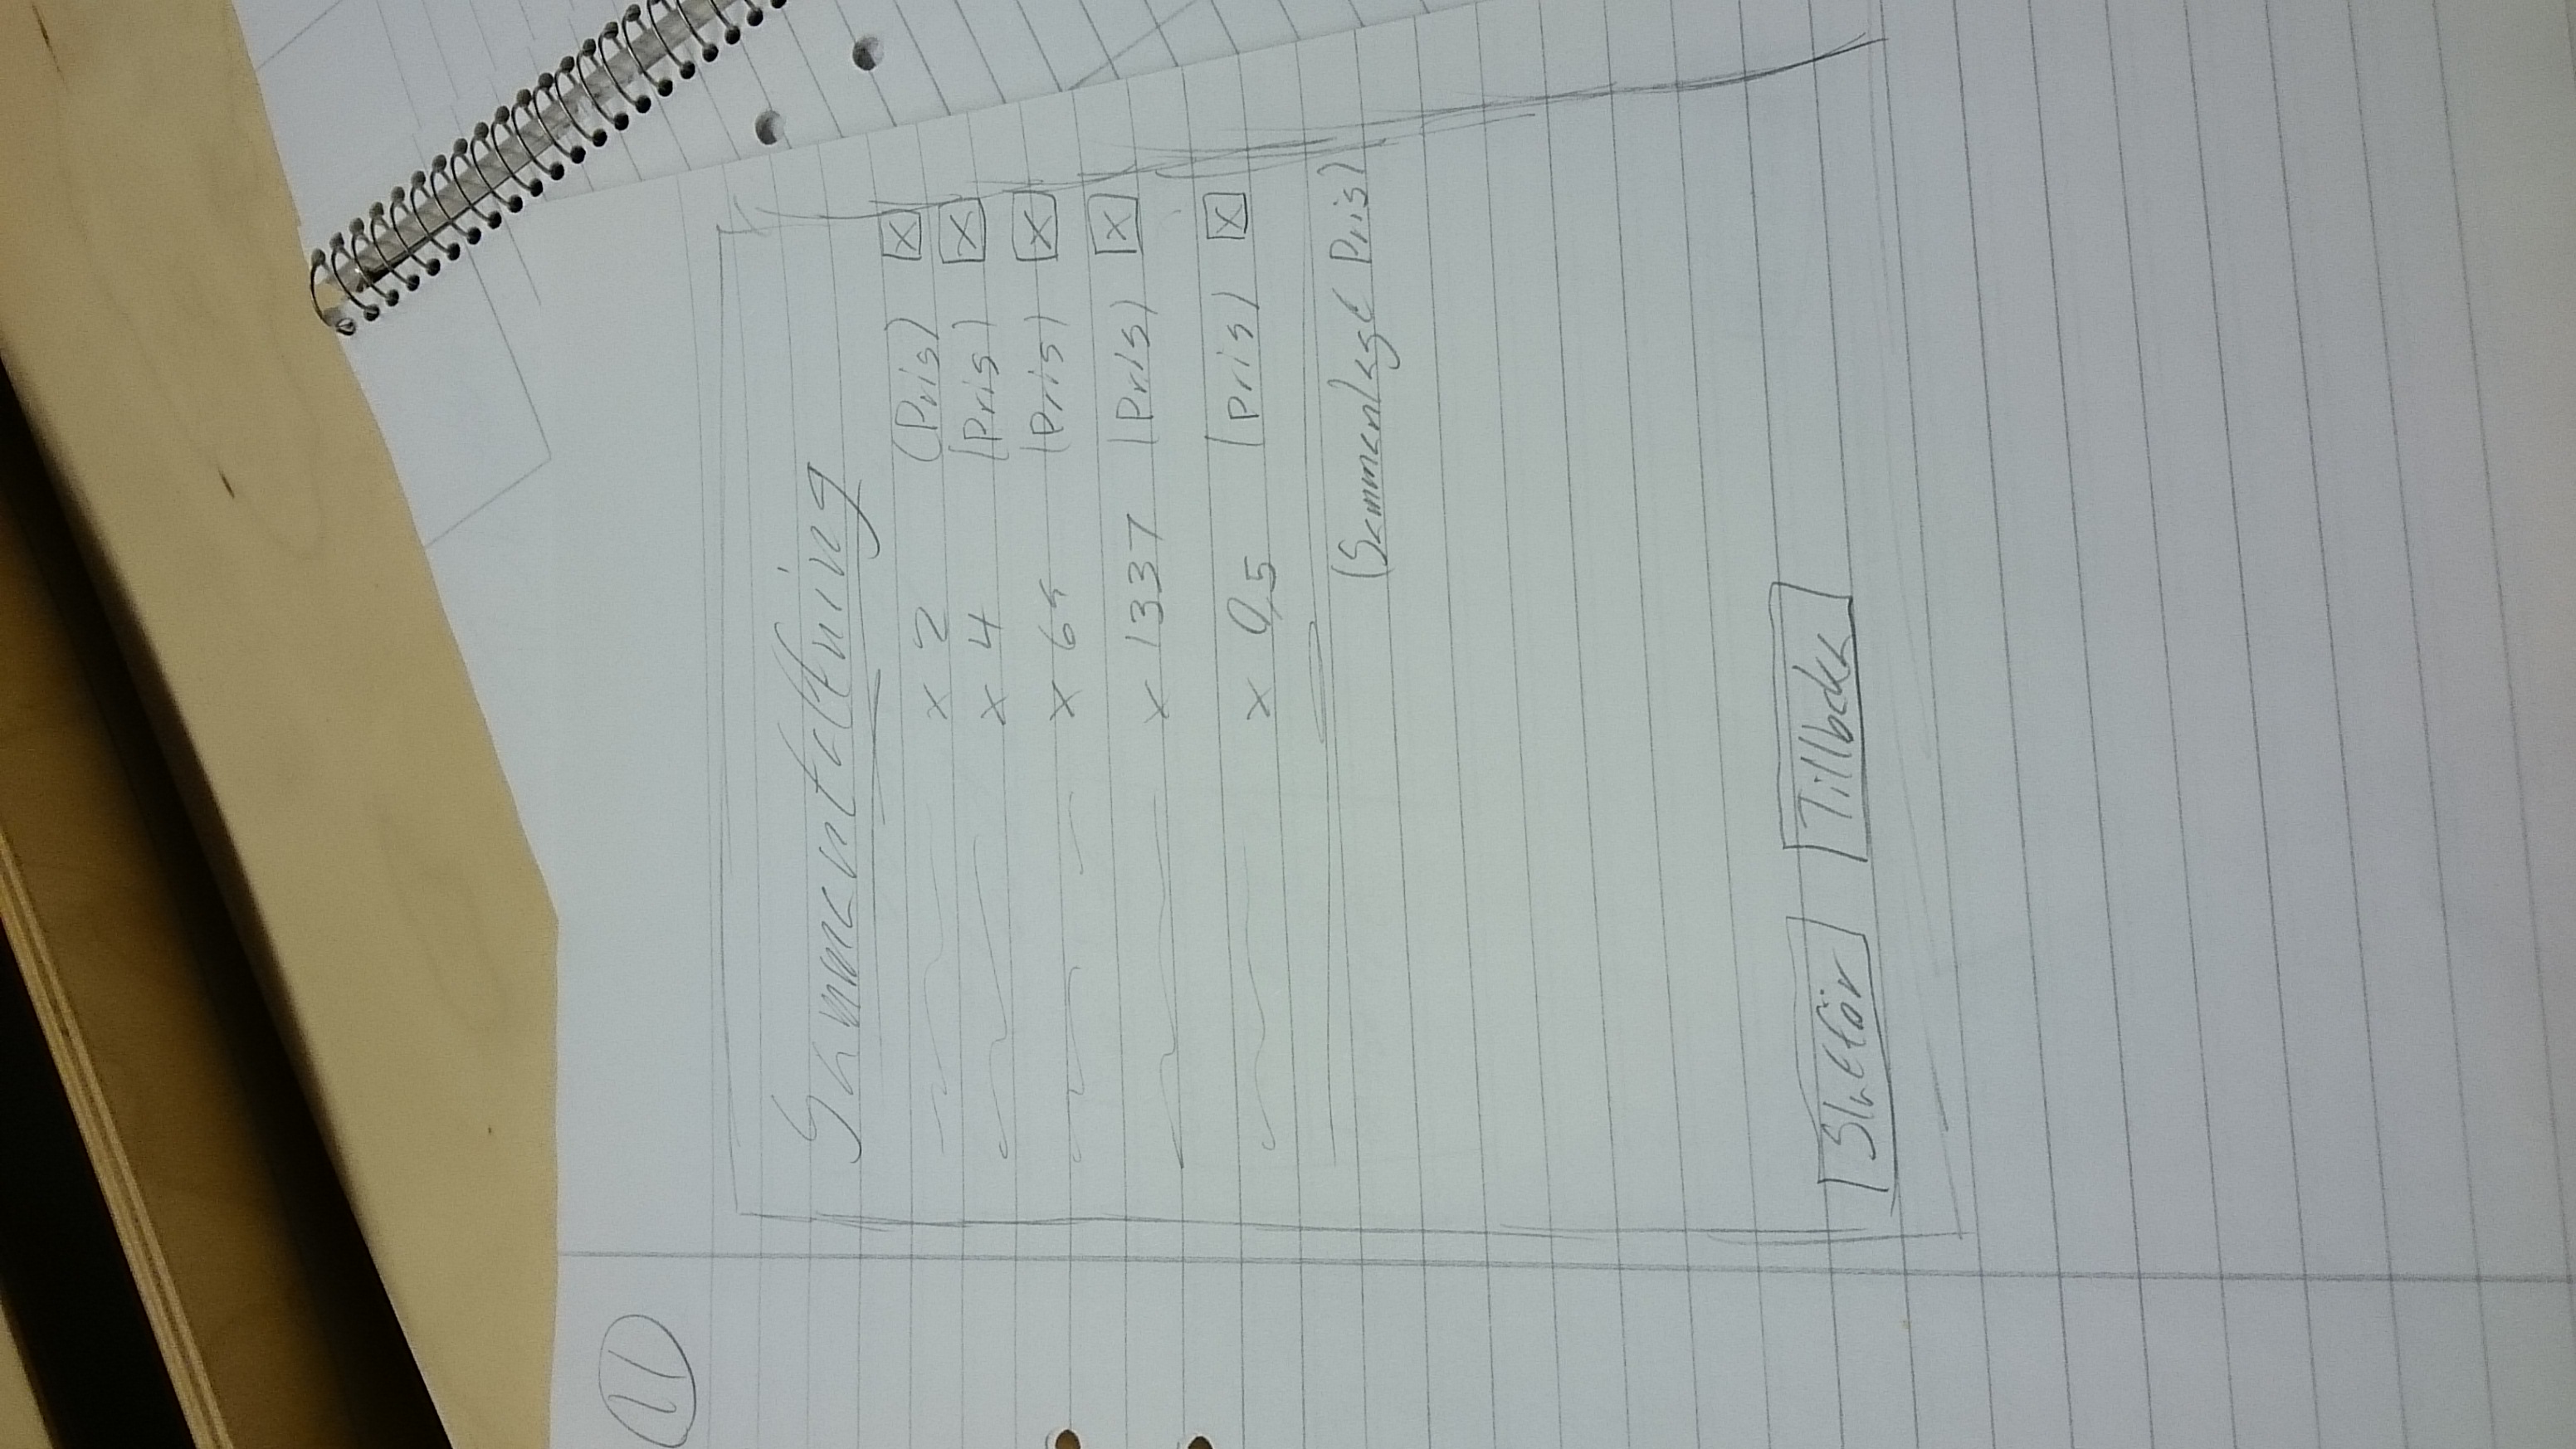 11
Sammanfattning
x 2 (Pris) x
x 4 (Pris) x
x (Pris) x
x 1337 (Pris) x
x 0,5 (Pris) x
(Sammanlagt Pris)
Slutför Tillbaka